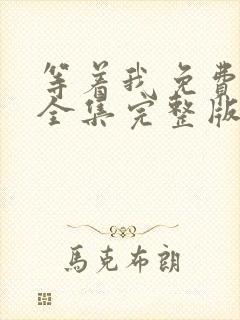 等着我免費
全集完整版
馬克布朗